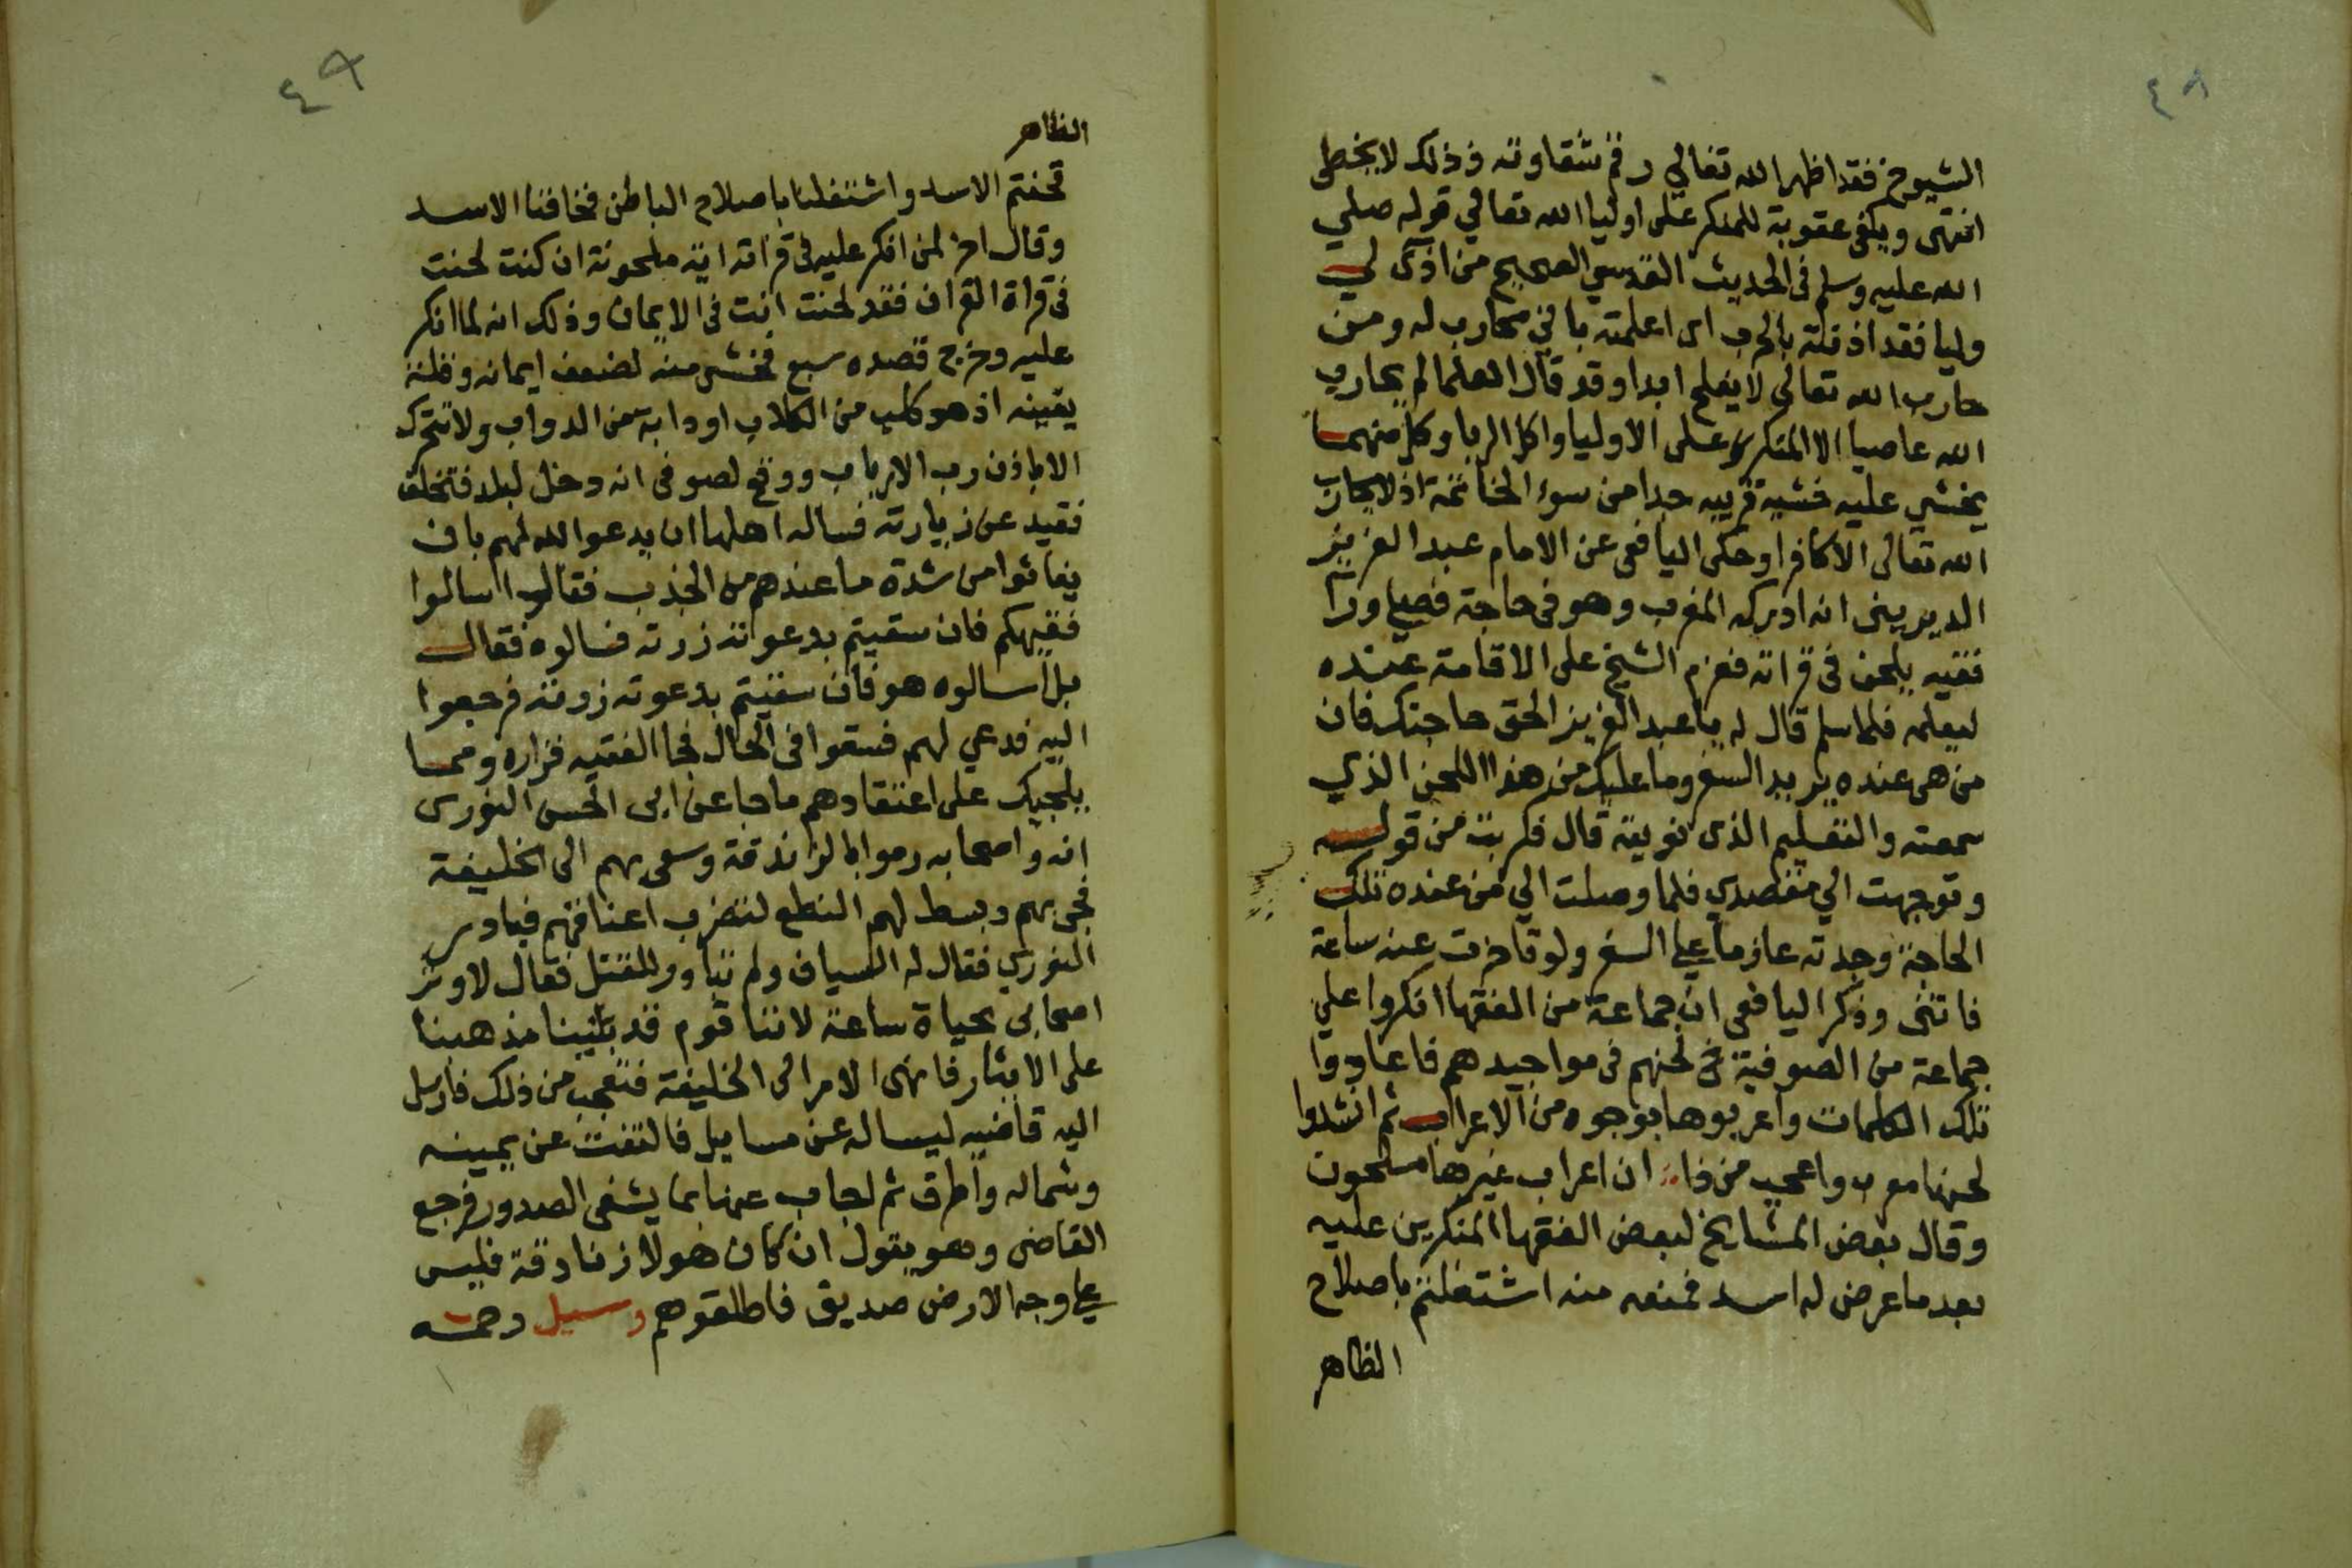 ٤٨
الشيوخ فقد اظهر الله تعالي رقم شقاوته وذلك لا يخطي
انتهى ويكفى عقوبة للمنكر على اوليا الله تعالي قوله صلي
الله عليه وسلم فى الحديث القدسي الصحيح من اذى لي
وليا فقد اذنته بالحرب اى اعلمته باني محارب له ومن
حارب الله تعالى لا يفلح ابدا وقد قال العلما لم يحارب
الله عاصيا الا المنكر على الاوليا واكل الربا وكل منهما
يخشي عليه خشية قريبه جدا من سوء الخاتمة اذ لا يحارب
الله تعالى الا كافرا وحكى اليافعى عن الامام عبد العزيز
الديرينى انه ادركه المغرب وهو فى حاجة فصلي ورا
فقيه يلحن فى قراته فعزم الشيخ على الاقامة عنده
ليعلمه فلما سلم قال له يا عبد العزيز الحق حاجتك فان
من هى عنده يريد السفر وما عليك من هذا اللحن الذي
سمعته والتعليم الذى نويته قال فكربت من قوله
وتوجهت الي مقصدي فلما وصلت الي من عنده تلك
الحاجة وجدته عازما علي السفر ولو تاخرت عنه ساعة
فاتنى وذكر اليافعى ان جماعة من الفقها انكروا علي
جماعة من الصوفية فى لحنهم فى مواجيدهم فاعادوا
تلك الكلمات واعربوها بوجوه من الاعراب ثم انشدوا
لحنها معرب واعجب من ذا ان اعراب غيرها ملحون
وقال بعض المشايخ لبعض الفقها المنكرين عليه
بعد ما عرض له اسد فمنعه منه اشتغلتم باصلاح
الظاهر
٤٩
الظاهر
فخفتم الاسد واشتغلنا باصلاح الباطن فخافنا الاسد
وقال اخر لمن انكر عليه فى قراته اية ملحونة ان كنت لحنت
فى قراة القران فقد لحنت انت فى الايمان وذلك انه لما انكر
عليه وخرج قصده سبع فخشى منه لضعف ايمانه وقلة
يقينه اذ هو كلب من الكلاب او دابة من الدواب ولا تتحرك
الا باذن رب الارباب ووقع لصوفى انه دخل لبلد فتخلف
فقيه عن زيارته فساله اهلها ان يدعو الله لهم بان
يغاثوا من شدة ما عندهم من الجدب فقال اسالوا
فقيهكم فان سقيتم بدعوته زرته فسالوه فقال
بل اسالوه هو فان سقيتم بدعوته زرته فرجعوا
اليه فدعي لهم فسقوا فى الحال فجا الفقيه فزاره ومما
يلجيك على اعتقادهم ما جا عن ابى الحسن النورى
انه واصحابه رموا بالزندقة وسعى بهم الى الخليفة
فجى بهم وبسط لهم النطع لتضرب اعناقهم فبادر
النوري فقال له السياف ولم تبادر للقتل فقال لاوثر
اصحابى بحياة ساعة لاننا قوم قد بنينا مذهبنا
على الايثار فانهى الامر الى الخليفة فتعجب من ذلك فارسل
اليه قاضيه ليساله عن مسايل فالتفت عن يمينه
وشماله واطرق ثم اجاب عنها بما يشفى الصدور فرجع
القاضى وهو يقول ان كان هولا زنادقة فليس
علي وجه الارض صديق فاطلقوهم وسيل رحمه